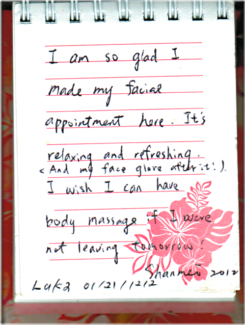 I am so glad I
made my facial
appointment here. It's
relaxing and refreshing.
(And my face glore after it!)
I wish I can have
body massage if I were
not leaving tomorrow!
2012
Luka 01/21/1212